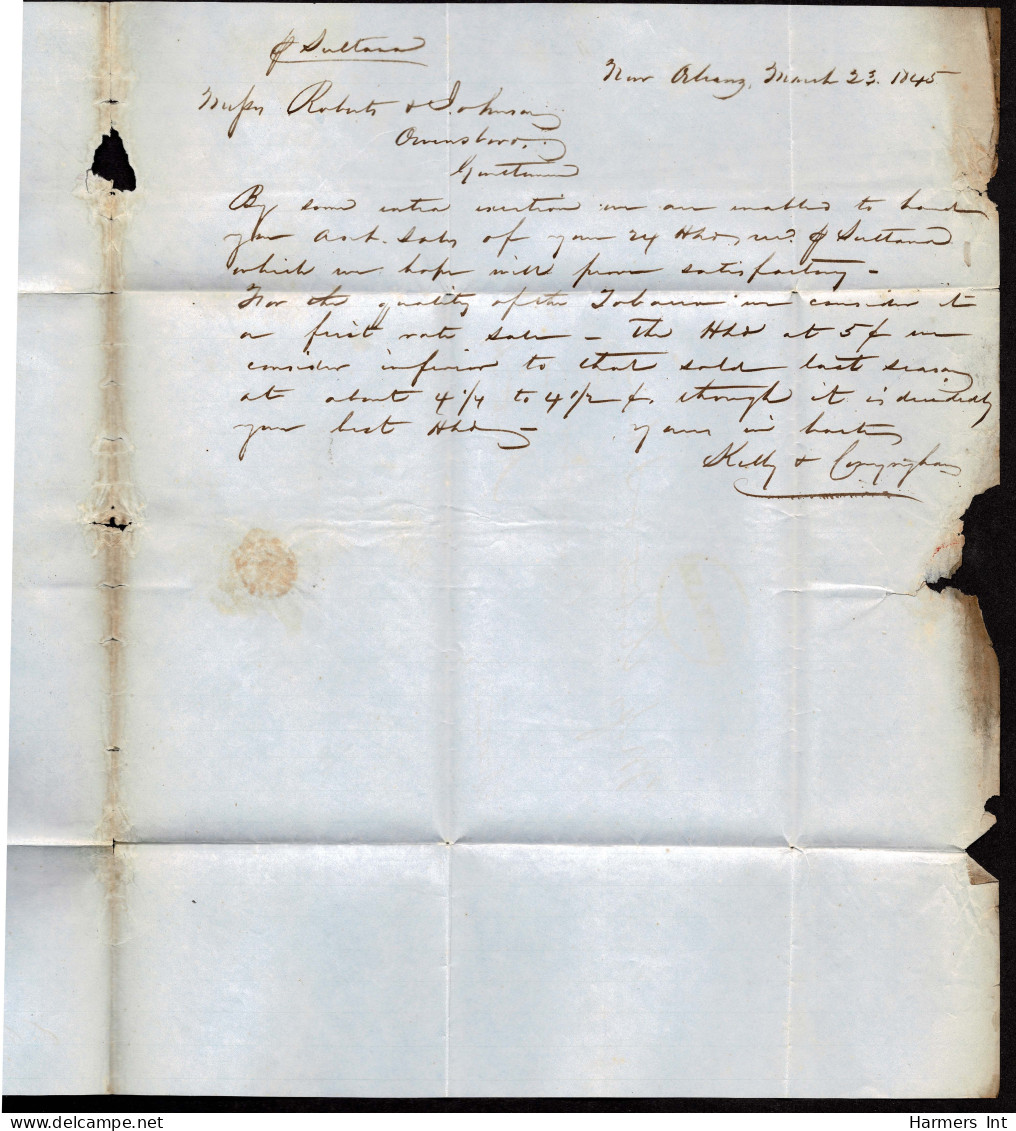 ⅌ Sultana
New Orleans, March 23. 1845
Messrs Roberts & Johnson
Owensboro,
Gentlemen
By some extra exertion we are enabled to hand
you act. sales of your 24 Hhds, ⅌ Sultana
which we hope will prove satisfactory -
For the quality of the Tobacco we consider it
a first rate sale - the Hhd at 5¢ we
consider inferior to that sold last season
at about 4 1/4 to 4 1/2 ¢, though it is decidedly
your best Hhd - yours in haste
Kelly & Conyngham
Harmers Int